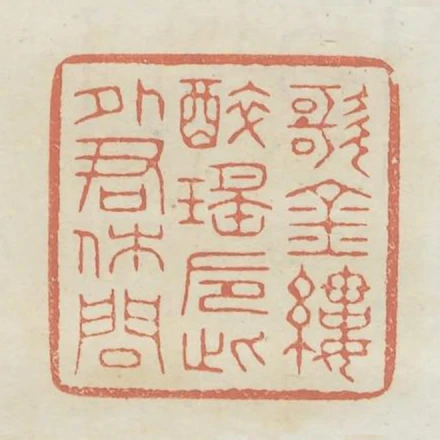 歌金縷
醉瑤卮此
外君休問